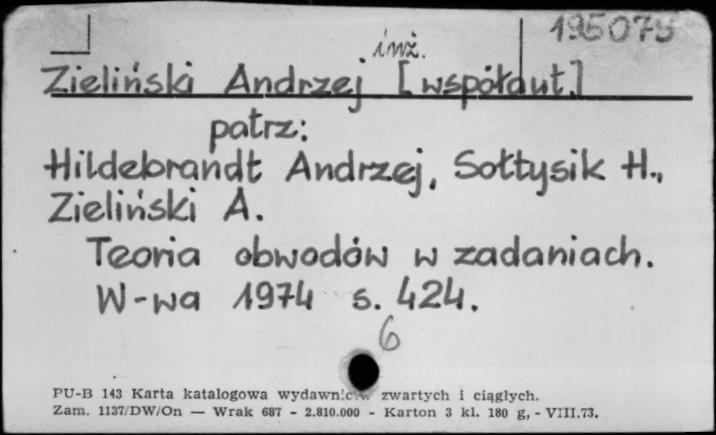 195075
inż.
Zieliński Andrzej [współaut.]
patrz:
Hildebrandt Andrzej, Sołtysik H.,
Zieliński A.
Teoria obwodów w zadaniach.
W-wa 1974 s. 424.
6
PU-B 143 Karta katalogowa wydawnictw zwartych i ciągłych.
Zam. 1137/DW/On — Wrak 687 - 2.810.000 - Karton 3 kl. 180 g, - VIII.73.